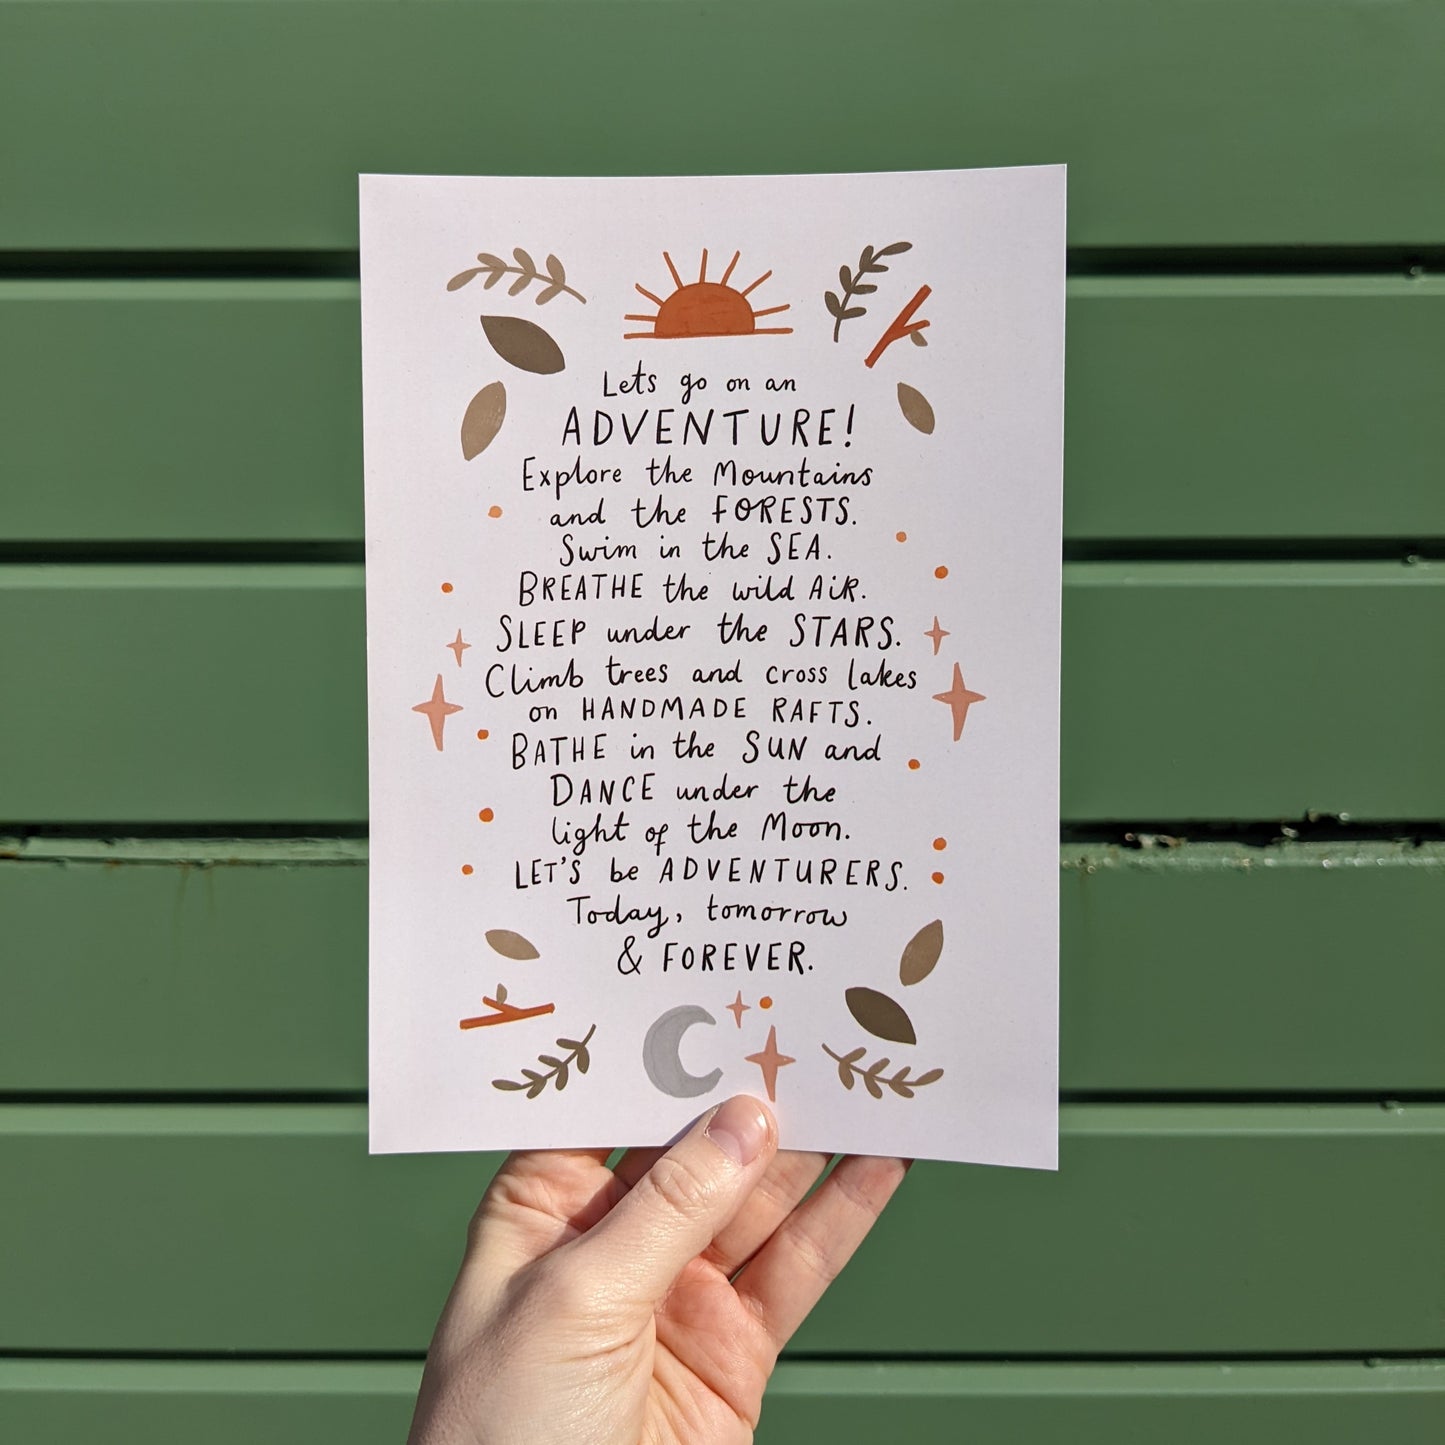 Lets go on an
ADVENTURE!
Explore the Mountains
and the FORESTS.
Swim in the SEA.
BREATHE the wild AiR.
SLEEP under the STARS.
Climb trees and cross lakes
on HANDMADE RAFTS.
BATHE in the SUN and
DANCE under the
light of the Moon.
LET'S be ADVENTURERS.
Today, tomorrow
& FOREVER.